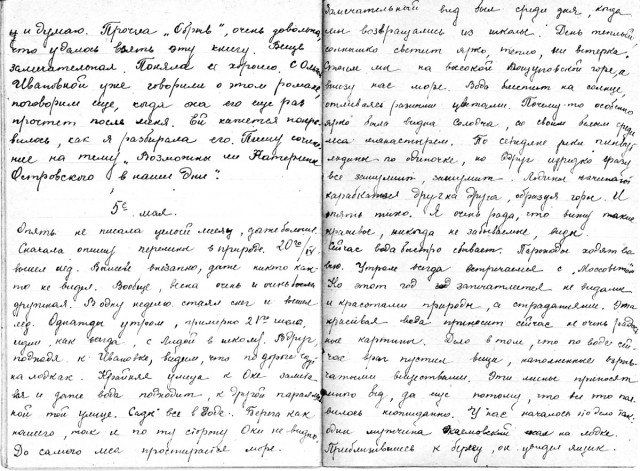 и думаю. Прочла „Обрыв", очень довольна,
что удалось взять эту книгу. Вещь
замечательная. Поняла её хорошо. С Ольгой
Ивановной уже говорили о этом романе,
поговорим ещё, когда она его ещё раз
прочтет после меня. Ей кажется понра-
вилось, как я разбирала его. Пишу сочине-
ние на тему „Возможны ли Катерины
Островского в наши дни".
5го мая.
Опять не писала целый месяц, даже больше.
Сначала опишу перемены в природе. 20го/IV
вышел лёд. Вышел внезапно, даже никто как-
то не видел. Вообще, весна очень и очень
дружная. В одну неделю стаял снег и вышел
лёд. Однажды утром, примерно 21го числа,
идём, как всегда, с Лидой в школу. Вдруг,
подходя к Ивановке, видим, что по дороге едут
на лодках. Крайняя улица к Оке залива-
вая и даже вода подходит к другой параллель-
ной той улице. Сады все в воде. Берега как
нашего, так и по ту сторону Оки не видно.
До самого леса простирается море.
Замечательный вид был среди дня, когда
мы возвращались из школы. День теплый,
солнышко светит ярко, тепло, ни ветерка.
Стоим мы на высокой горе, а
внизу нас море. Вода блестит на солнце,
отливаясь разными цветами. Почему-то особенно
ярко была видна Солотча, со своим белым среди
леса монастырем. По середине реки плывут
льдины по одиночке, но вдруг изредко сразу
все зашумит, зашумит. Льдины начинают
карабкаться друг на друга, образуя горы. И
опять тихо. Я очень рада, что вижу такие
красивое, никогда не забываемые виды.
Сейчас вода быстро сбывает. Пароходы ходят во-
всю. Утром всегда встречаемся с „Московской"
Но этот год запечатлеется не видами
и красотами природы, а страданиями. Эта
красивая вода приносит сейчас не очень радост-
ные картины. Дело в том, что по воде сей-
час враг пустил вещи, наполненные взрыв-
чатыми веществами. Эти мины приносят
много бед, да ещё потому, что всё это поя-
вилось неожиданно. У нас началось это дело так:
один мужчина ехал на лодке.
Приблизившись к берегу, он увидел ящик.